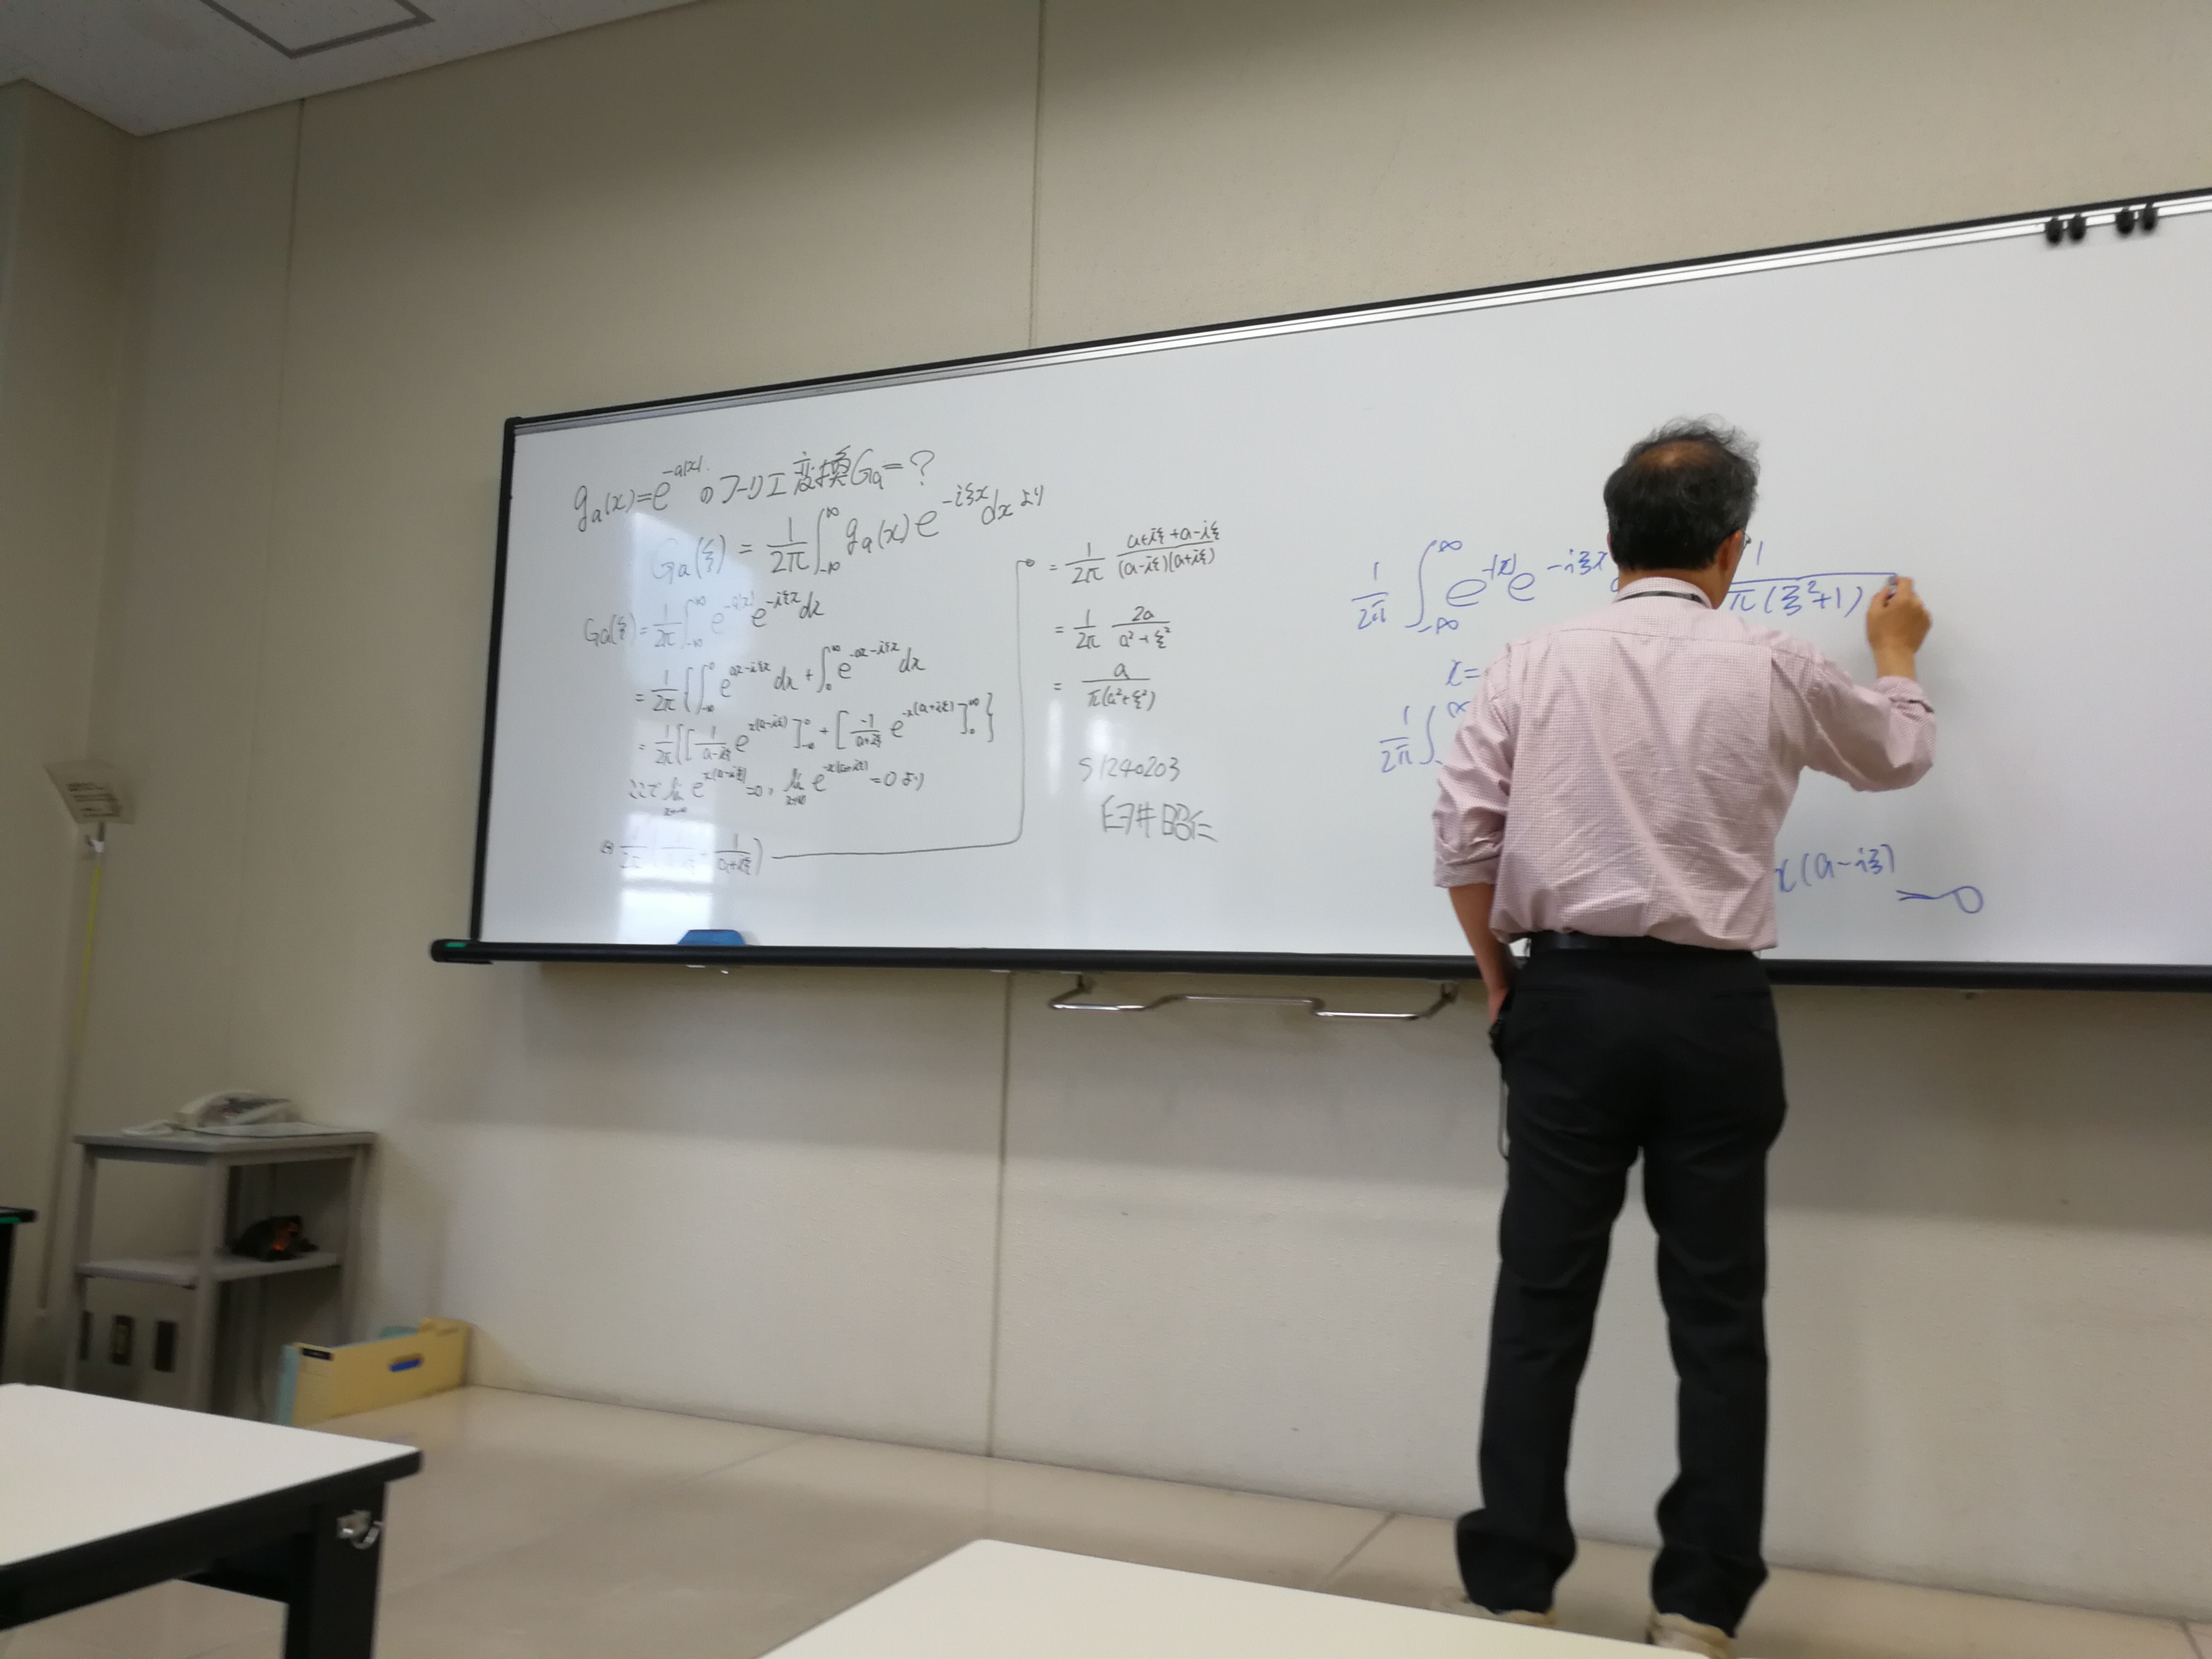 g_a(x)=e^{-a|x|} のフーリエ変換G_a=?
G_a(ξ) = \frac{1}{2π}∫_{-∞}^{∞} g_a(x) e^{-iξx} dx より
G_a(ξ) = \frac{1}{2π}∫_{-∞}^{∞} e^{-a|x|} e^{-iξx} dx
= \frac{1}{2π}{∫_{-∞}^{0} e^{ax-iξx} dx + ∫_{0}^{∞} e^{-ax-iξx} dx
= \frac{1}{2π}{[\frac{1}{a-iξ} e^{x(a-iξ)}]_{-∞}^{0} + [\frac{-1}{a+iξ} e^{-x(a+iξ)}]_{0}^{∞}}
ここで lim_{x→-∞} e^{x(a-iξ)}=0, lim_{x→∞} e^{-x(a+iξ)}=0 より
\frac{1}{2π} \frac{1}{a+iξ})
= \frac{1}{2π} \frac{a+iξ+a-iξ}{(a-iξ)(a+iξ)}
= \frac{1}{2π} \frac{2a}{a²+ξ²}
= \frac{a}{π(a²+ξ²)}
S1240203
\frac{1}{2π} ∫_{-∞}^{∞} e^{-|x|} e^{-iξx} \frac{1}{π(ξ²+1)}
x=
\frac{1}{2π} ∫^{∞}
x(a-iξ) = 0